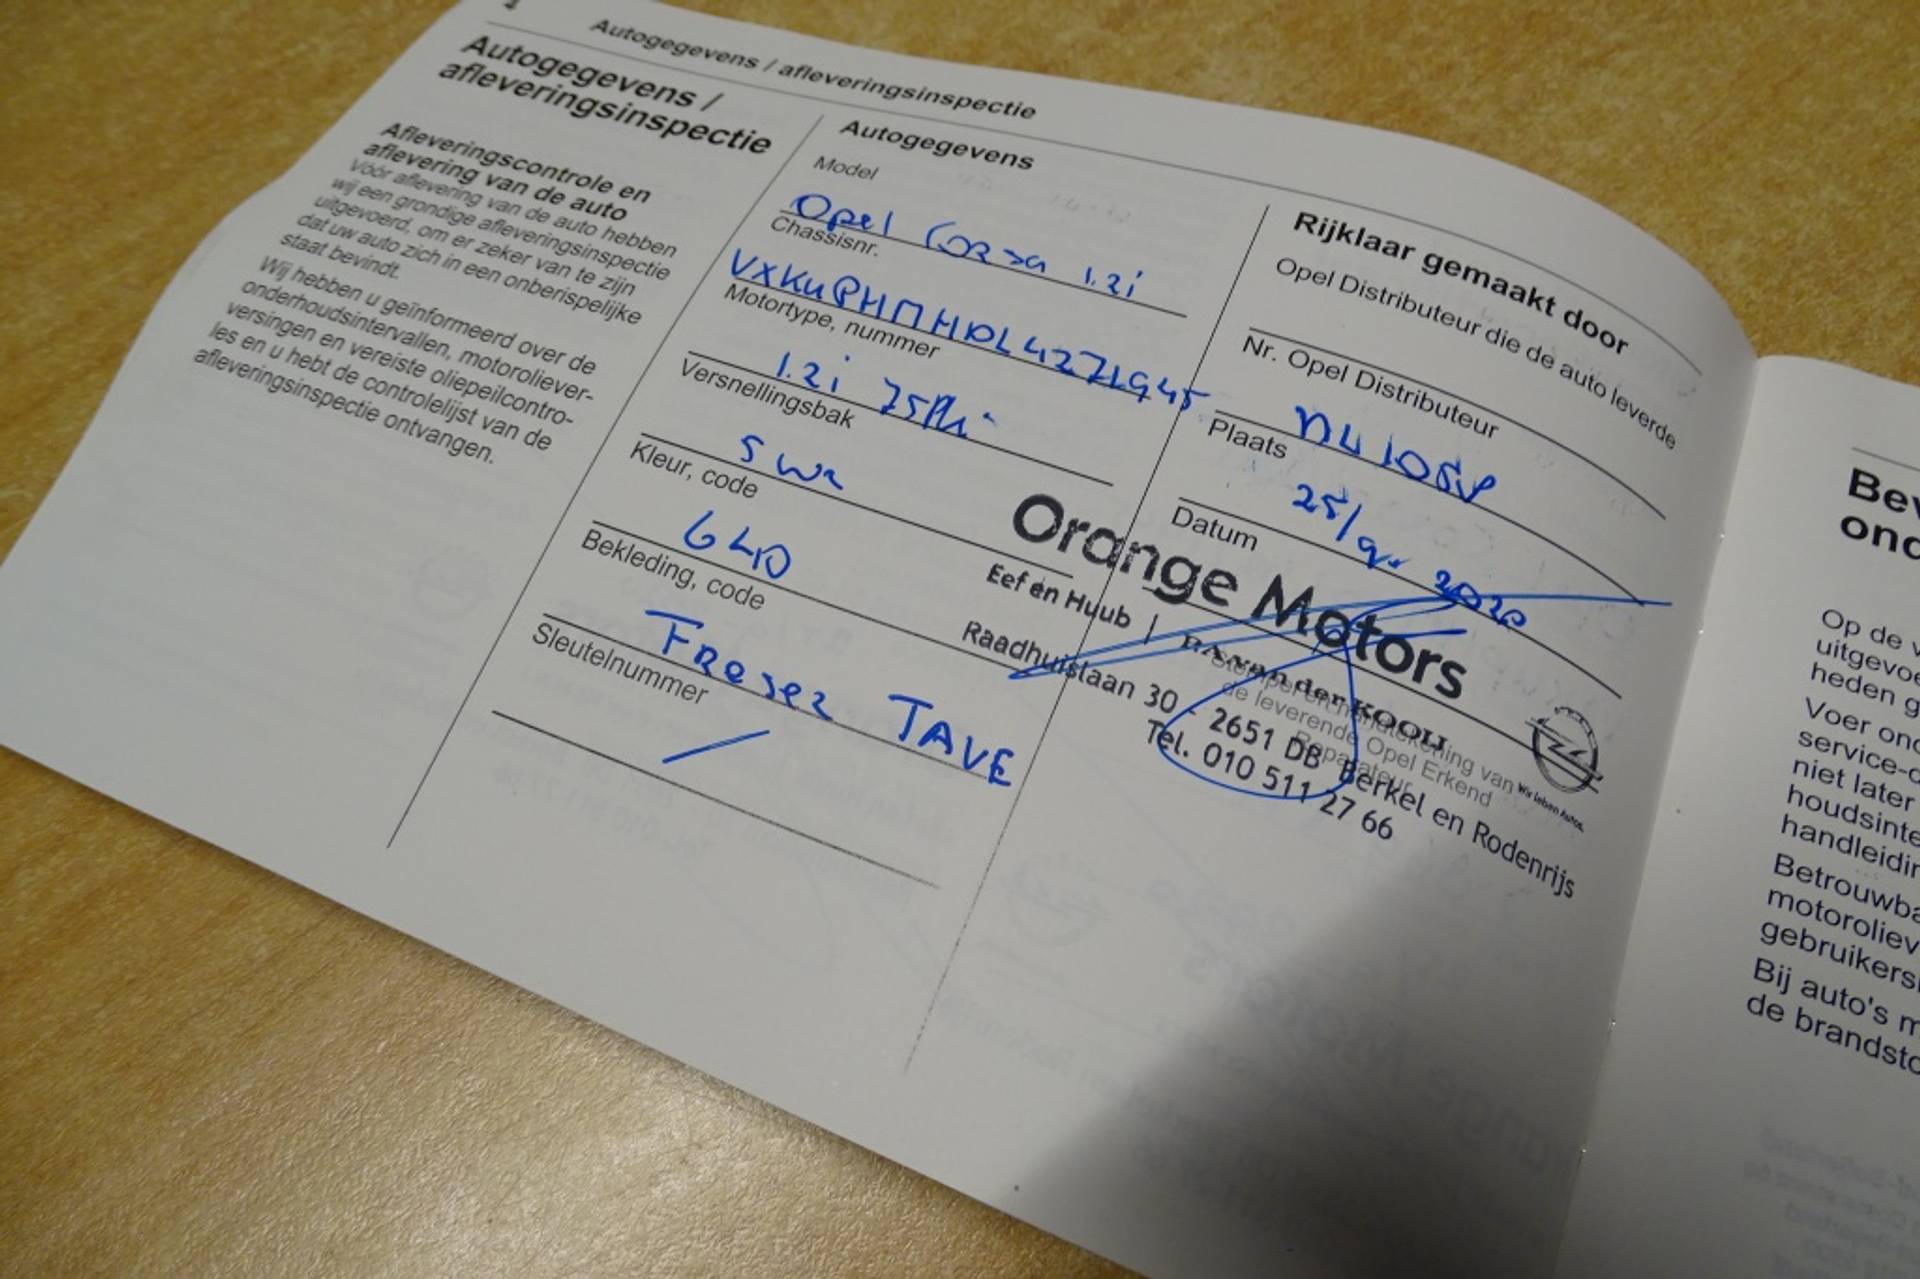 4
Autogegevens / afleveringsinspectie
Autogegevens /
afleveringsinspectie
Afleveringscontrole en
aflevering van de auto
Vóór aflevering van de auto hebben
wij een grondige afleveringsinspectie
uitgevoerd, om er zeker van te zijn
dat uw auto zich in een onberispelijke
staat bevindt.
Wij hebben u geïnformeerd over de
onderhoudsintervallen, motoroliever-
versingen en vereiste oliepeilcontro-
les en u hebt de controlelijst van de
afleveringsinspectie ontvangen.
Autogegevens
Model
Opel Corsa 1.2i
Chassisnr.
Motortype, nummer
1.2i
Versnellingsbak
Kleur, code
Bekleding, code
TAVE
Sleutelnummer
Rijklaar gemaakt door
Opel Distributeur die de auto leverde
Nr. Opel Distributeur
Plaats
Datum
2020
Orange Motors
Eef en Huub | van der KOOIJ
Raadhuislaan 30 - 2651 DB Berkel en Rodenrijs
Tel. 010 511 27 66
Stempel en handtekening van
de leverende Opel Erkend
Reparateur
Wir leben Autos.
Bev
ond
Op de v
uitgevoe
heden g
Voer ond
service-o
niet later
houdsinte
handleidin
Betrouwba
motoroliev
gebruikers
Bij auto's m
de brandsto